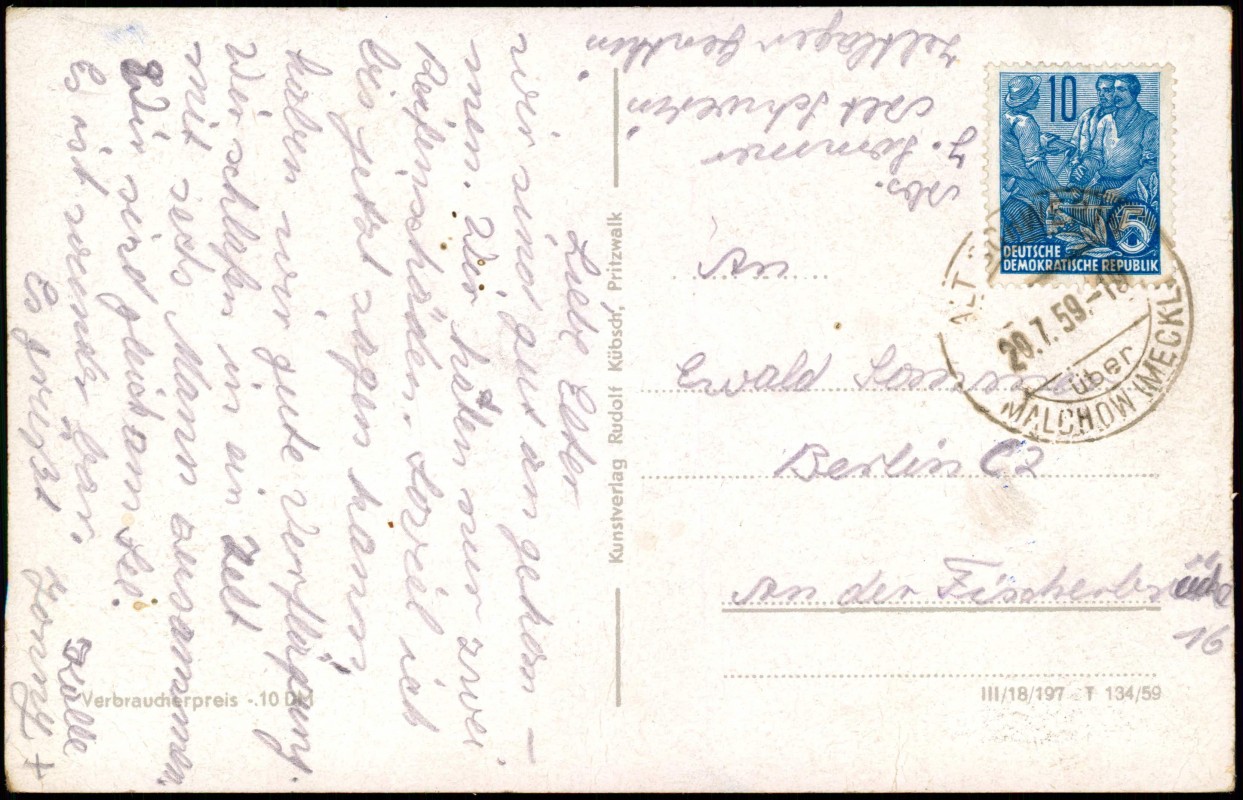 Liebe Elter
wir sind gut an gekom-
men. Wir haben nur zwei
Reifenschäden. Soviel ich
bis jetzt sagen kann
haben wir gute Verpflegung.
Wir schlafen in ein Zelt
mit sechs Mann zusammen.
Wir sind gleich am See.
Es ist wunder bar.
Es grüßt
Verbraucherpreis -.10 DM
Kunstverlag Rudolf Kübsch, Pritzwalk
Abs.
J. Sommer
Alt Schwerin
Zeltlager Genthin
10
5
DEUTSCHE
DEMOKRATISCHE REPUBLIK
ALT
20.7.59.-18
über
MALCHOW (MECKL
An
Ewald Sommer
Berlin C2
An der Fischerbrücke
16
III/18/197 T 134/59